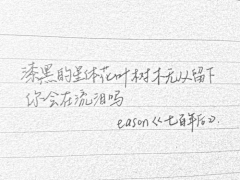 漆黑的星体花叶树木无从留下
你会在流泪吗
eason《七百年后》